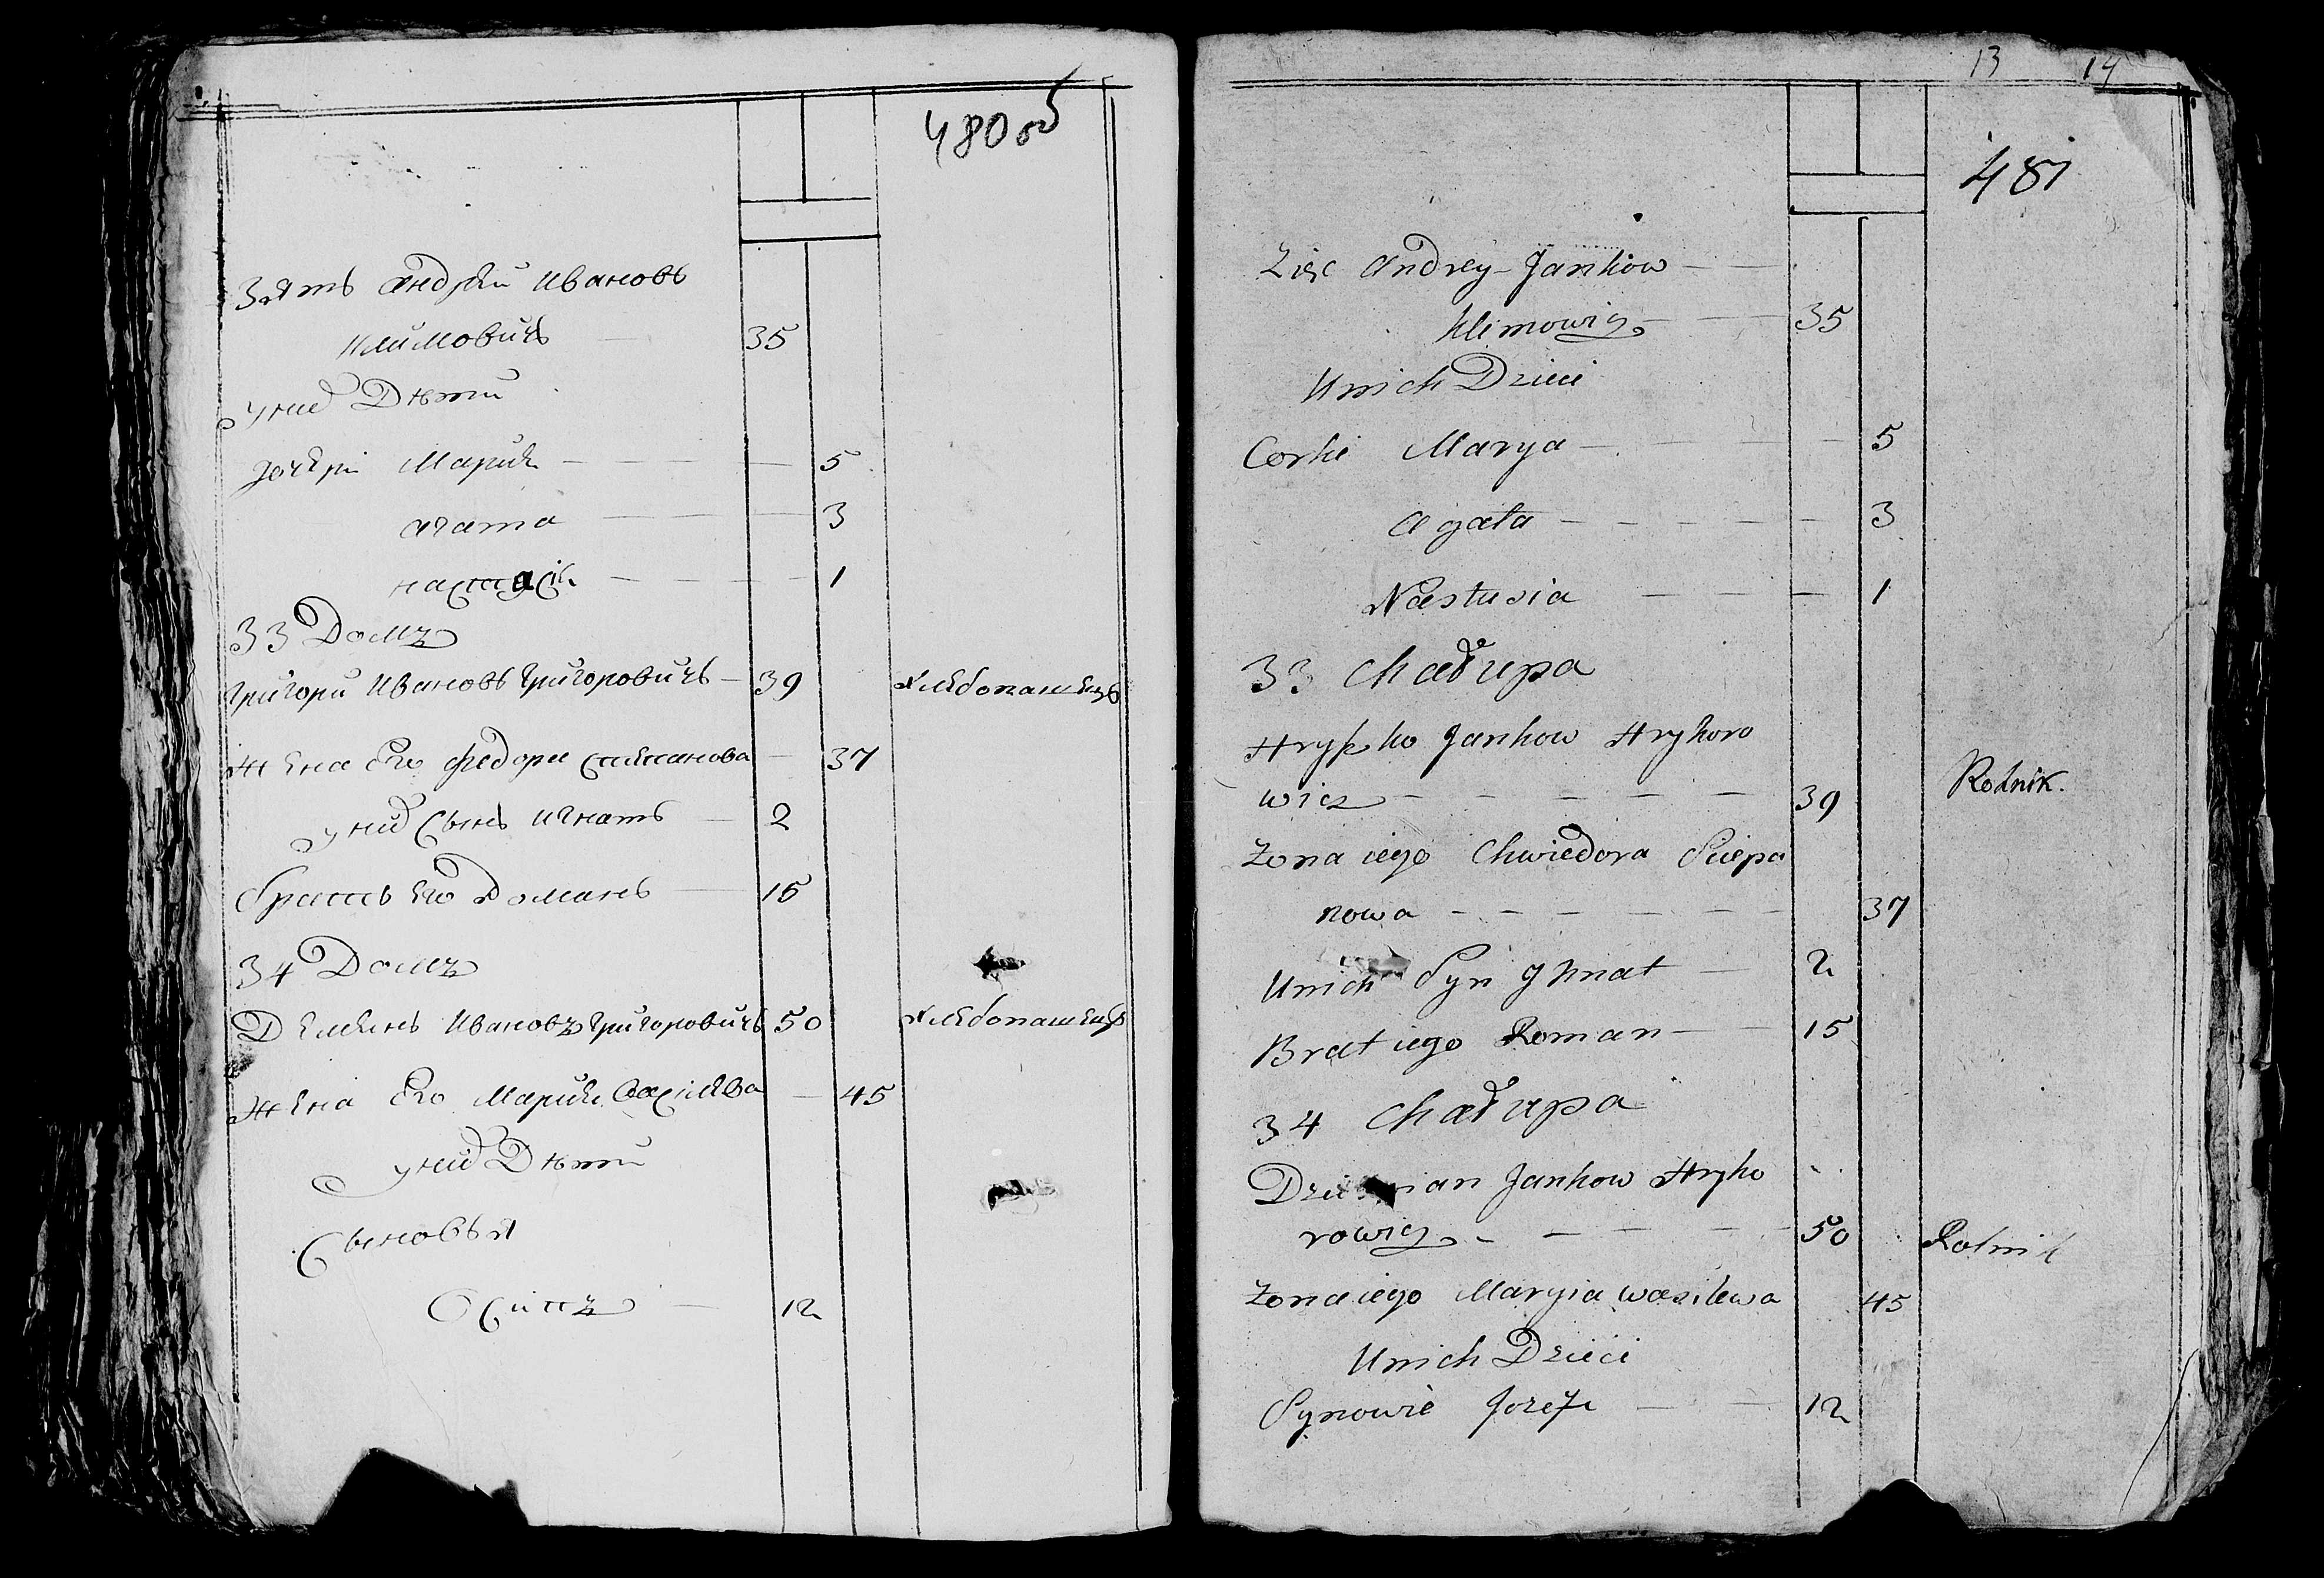 480 об
Зять Андрей Ивановъ
Климовичъ — 35
у них Дѣти
дочери Мария — 5
агата — 3
настася — 1
33 Домъ
Григори Ивановъ Григоровичъ — 39 хлебопашецъ
Жена Его федора степанова — 37
у них Сынъ игнатъ — 2
братъ Его Романъ — 15
34 Домъ
Демянъ Ивановъ Григоровичъ 50 хлебопашецъ
Жена Его Мария Васілева — 45
у них Дѣти
Сыновья
Осипъ — 12
13 14
481
Zięc Andrey Jankow — —
Klimowicz — — 35
Unich Dzieci
Corki Marya — — — — 5
Agata — — — — — 3
Nastusia — — — 1
33 Chałupa
Hryszko Jankow Hryhoro
wicz — — — — — 39 Rolnik.
Zona iego Chwiedora Sciepa
nowa — — — — — — 37
Unich Syn Jhnat — 2
Brat iego Roman — — 15
34 Chałupa
Jankow Hryho
rowicz — — — — 50 Rolnik
Zona iego Maryia Wasilewa 45
Unich Dzieci
Synowie Jozef — — 12